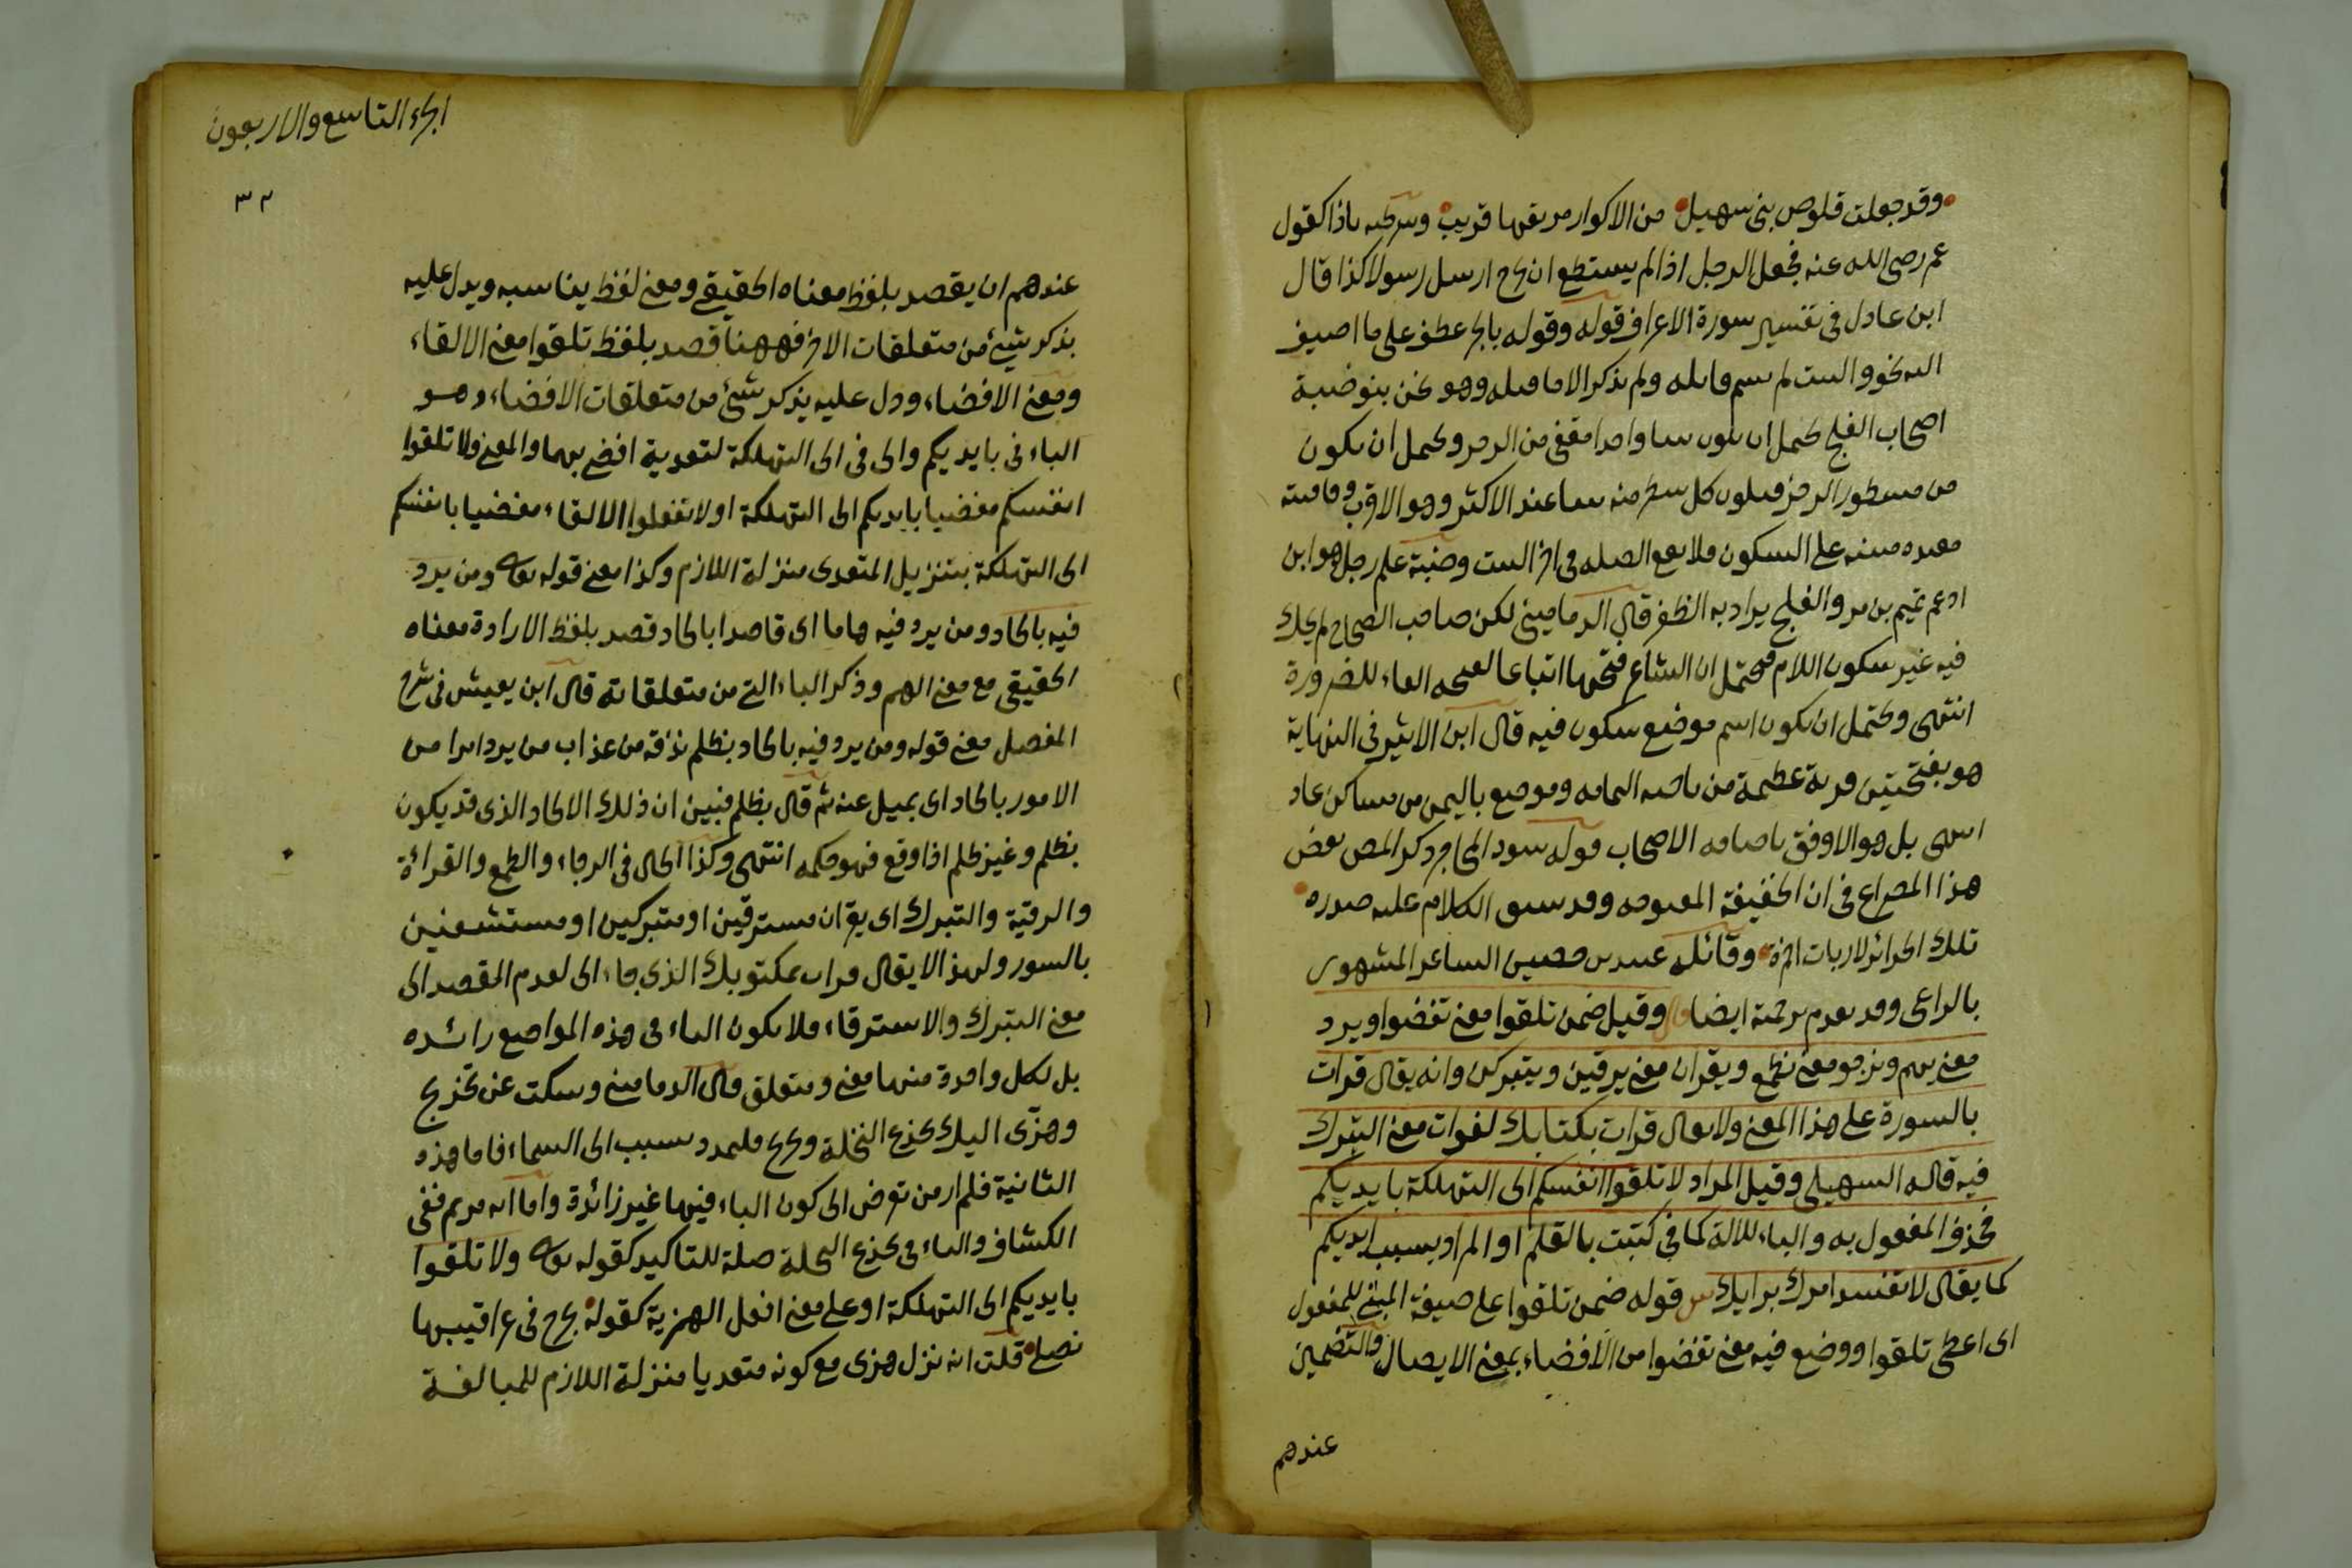 وقد جعلت قلوص بنى سهيل من الاكوار مرتعها قريب وشرطية باذا كقول
عم رضى الله عنه فجعل الرجل اذا لم يستطع ان يخرج ارسل رسولا كذا قال
ابن عادل فى تفسير سورة الاعراف قوله وقوله بالجر عطف على ما اضيف
اليه نحو والبيت لم يسم قايله ولم يذكر الا ما قبله وهو نحن بنو ضبة
اصحاب الفلج يحتمل ان يكون بيتا واحدا مقفى من الرجز ويحتمل ان يكون
من مشطور الرجز فيكون كل شطر منه بيتا عند الاكثر وهو الاقرب وقافيته
مقيده مبنية على السكون فلا تقع الصله فى اخر البيت وضبة علم رجل هو ابن
اد عم تميم بن مر والفلج يراد به الظفر قال الدمامينى لكن صاحب الصحاح لم يحك
فيه غير سكون اللام فيحتمل ان الشاعر فتحها اتباعا لفتحه الفاء للضرورة
انتهى ويحتمل ان يكون اسم موضع سكون فيه قال ابن الاثير فى النهاية
هو بفتحتين قرية عظيمة من ناحيه اليمامه وموضع باليمن من مساكن عاد
انتهى بل هو الاوفق باضافه الاصحاب قوله سود المحاجر ذكر المص بعض
هذا المصراع فى ان الخفيفة المفتوحه وقد سبق الكلام عليه صدره
تلك الحرائر لا ربات اخمرة وقائله عبيد بن حصين الشاعر المشهور
بالراعى وقد تقدم ترجمة ايضا وقيل ضمن تلقوا معنى تفضوا ويرد
معنى يهم ونرجو معنى نطمع ويقران معنى يرقين ويتبركن وانه يقال قرات
بالسورة على هذا المعنى ولا يقال قرات بكتابك لفوات معنى التبرك
فيه قاله السهيلى وقيل المراد لا تلقوا انفسكم الى التهلكة بايديكم
فحذف المفعول به والباء للالة كما فى كتبت بالقلم او المراد بسبب ايديكم
كما يقال لا تفسد امرك برايك ش قوله ضمن تلقوا على صيغة المبنى للمفعول
اى اعطى تلقوا ووضع فيه معنى تفضوا من الافضاء بمعنى الايصال والتضمين
عندهم
الجزء التاسع والاربعون
٣٢
عندهم ان يقصد بلفظ معناه الحقيقى ومعنى لفظ يناسبه ويدل عليه
بذكر شيئ من متعلقات الاخر فههنا قصد بلفظ تلقوا معنى الالقاء
ومعنى الافضاء ودل عليه بذكر شيئ من متعلقات الافضاء وهو
الباء فى بايديكم والى فى الى التهلكة لتعدية افضى بهما والمعنى ولا تلقوا
انفسكم مفضيا بايديكم الى التهلكة او لا تفعلوا الالقاء مفضيا بانفسكم
الى التهلكة بتنزيل المتعدى منزلة اللازم وكذا معنى قوله تعالى ومن يرد
فيه بالحاد ومن يرد فيه هاما اى قاصدا بالحاد قصد بلفظ الارادة معناه
الحقيقى مع معنى الهم وذكر الباء التى من متعلقاته قال ابن يعيش فى شرح
المفصل معنى قوله ومن يرد فيه بالحاد بظلم نذقه من عذاب من يرد امرا من
الامور بالحاد اى بميل عنه ثم قال بظلم فبين ان ذلك الالحاد الذى قد يكون
بظلم وغير ظلم اذا وقع فهو حكمه انتهى وكذا الحال فى الرجاء والطمع والقراءة
والرقية والتبرك اى يقران مسترقين او متبركين او مستشفين
بالسور ولهذا لا يقال قرات بمكتوبك الذى جاء الى لعدم المقصد الى
معنى التبرك والاسترقاء فلا يكون الباء فى هذه المواضع زائده
بل لكل واحدة منها معنى ومتعلق قال الدمامينى وسكت عن تخريج
وهزى اليك بجذع النخلة وتخريج فليمدد بسبب الى السماء فاما هذه
الثانية فلم ار من تعرض الى كون الباء فيها غير زائدة واما ايه مريم ففى
الكشاف والباء فى بجذع النخلة صلة للتاكيد كقوله تعالى ولا تلقوا
بايديكم الى التهلكة او على معنى افعلى الهز به كقوله يجرح فى عراقيبها
نصلى قلت انه نزل هزى مع كونه متعديا منزلة اللازم للمبالغة